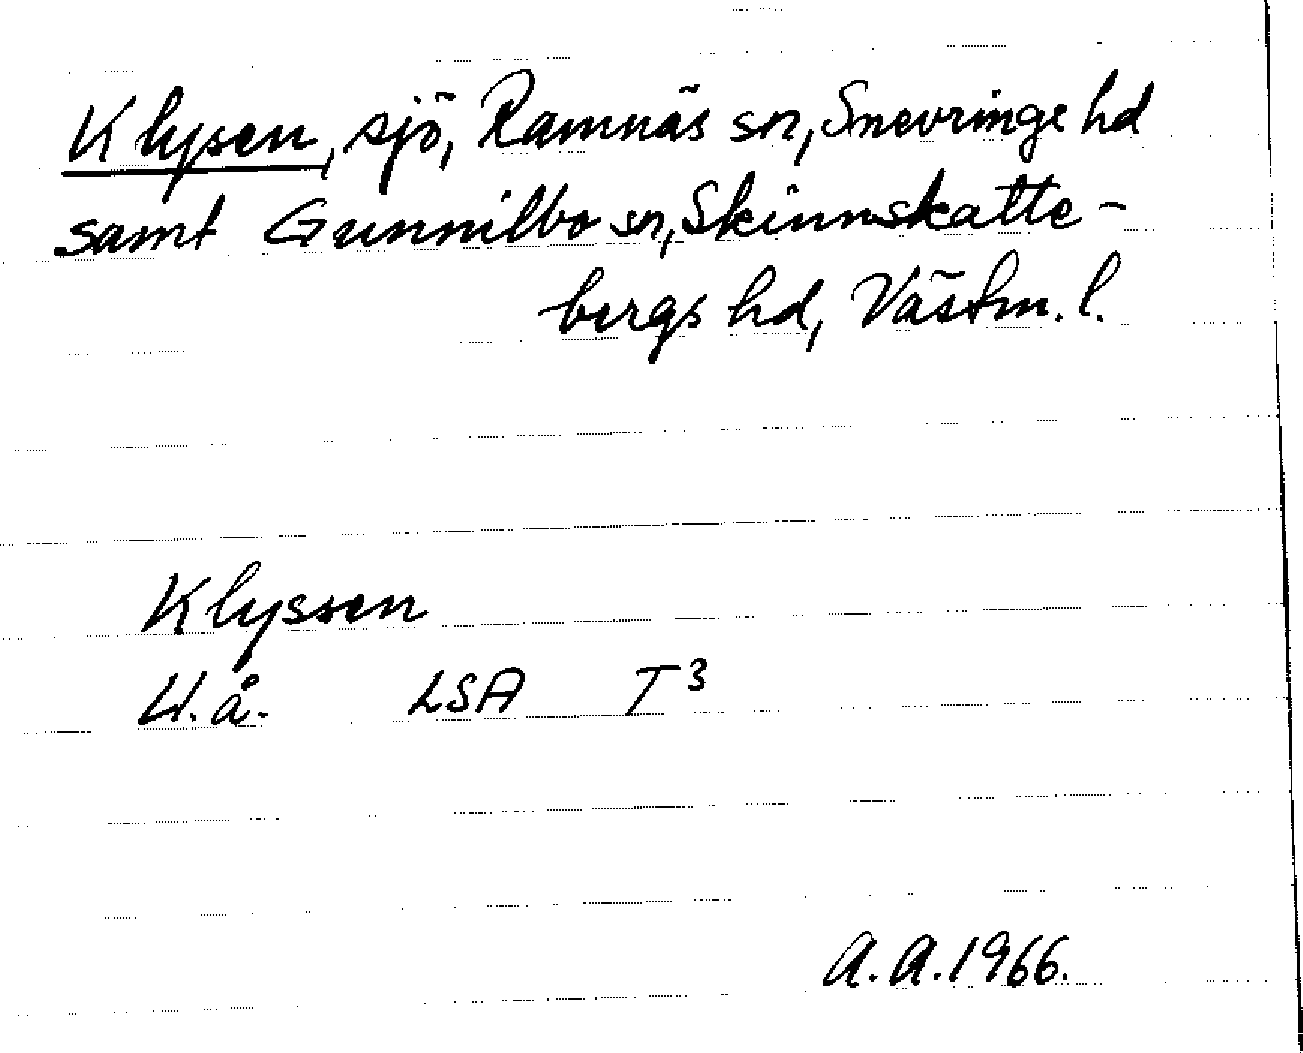 Klysen, sjö, Ramnäs sn, Snevringe hd
samt Gunnilbo sn, Skinnskatte-
bergs hd, Västm. l.
Klyssen
U.å. LSA T3
A.A. 1966.